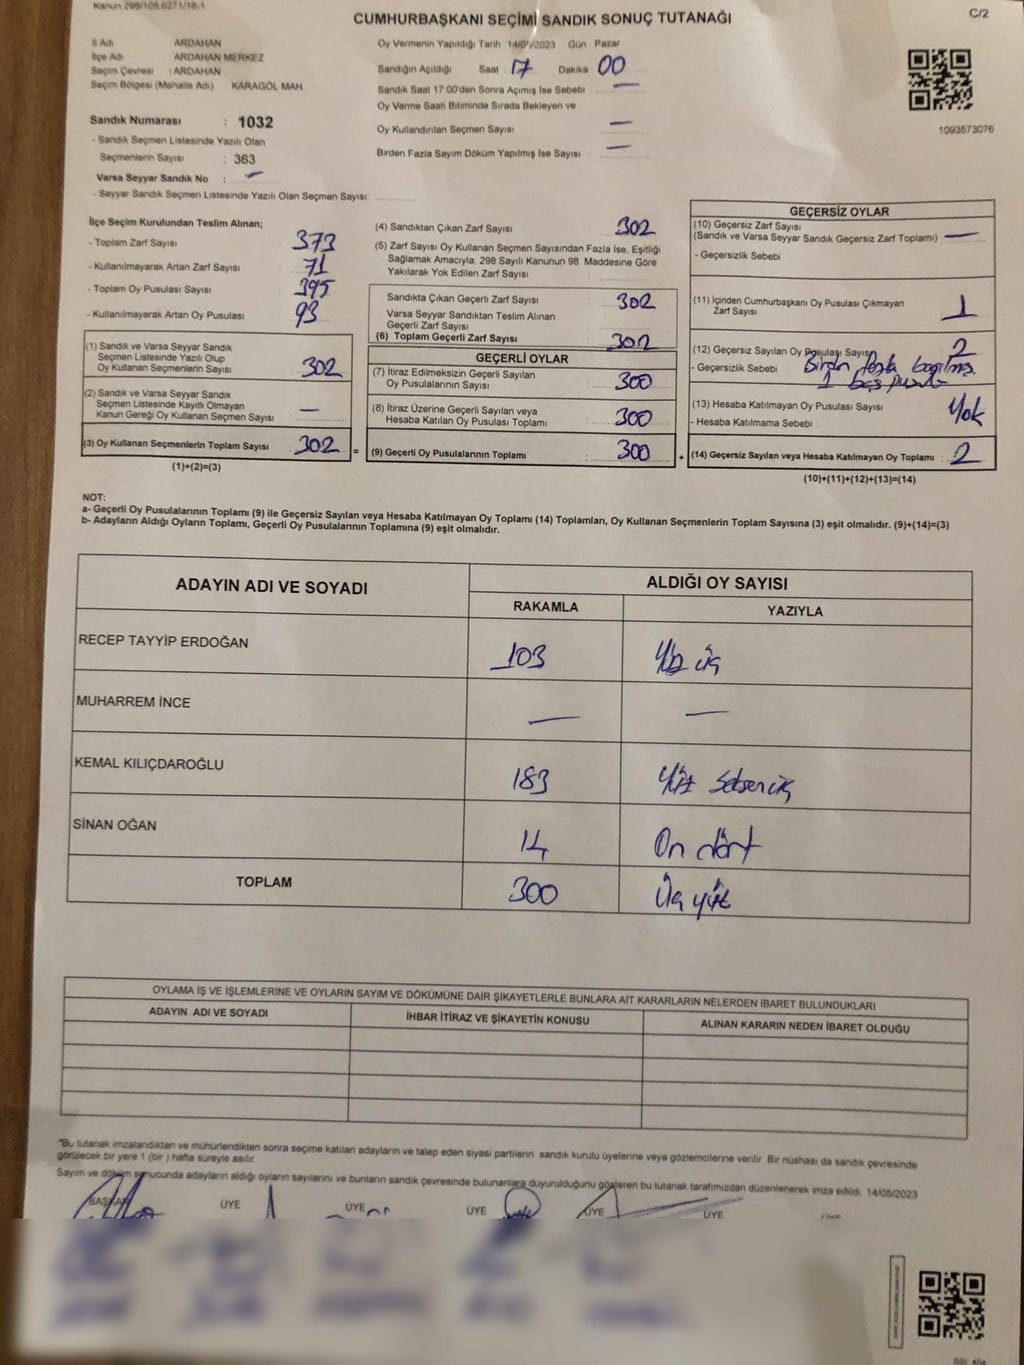 CUMHURBAŞKANI SEÇİMİ SANDIK SONUÇ TUTANAĞI
C/2
İl Adı ARDAHAN
İlçe Adı ARDAHAN MERKEZ
Seçim Çevresi : ARDAHAN
Seçim Bölgesi (Mahalle Adı) KARAGÖL MAH.
Oy Vermenin Yapıldığı Tarih 14/05/2023 Gün Pazar
Sandığın Açıldığı Saat 17 Dakika 00
Sandık Saat 17:00'den Sonra Açımış İse Sebebi —
Oy Verme Saati Bitiminde Sırada Bekleyen ve
Oy Kullandırılan Seçmen Sayısı —
Birden Fazla Sayım Döküm Yapılmış İse Sayısı : —
1093573076
Sandık Numarası : 1032
- Sandık Seçmen Listesinde Yazılı Olan
Seçmenlerin Sayısı : 363
Varsa Seyyar Sandık No : —
- Seyyar Sandık Seçmen Listesinde Yazılı Olan Seçmen Sayısı:
İlçe Seçim Kurulundan Teslim Alınan;
- Toplam Zarf Sayısı 373
- Kullanılmayarak Artan Zarf Sayısı 71
- Toplam Oy Pusulası Sayısı 395
- Kullanılmayarak Artan Oy Pusulası 93
(1) Sandık ve Varsa Seyyar Sandık
Seçmen Listesinde Yazılı Olup
Oy Kullanan Seçmenlerin Sayısı 302
(2) Sandık ve Varsa Seyyar Sandık
Seçmen Listesinde Kayıtlı Olmayan
Kanun Gereği Oy Kullanan Seçmen Sayısı —
(3) Oy Kullanan Seçmenlerin Toplam Sayısı : 302 =
(1)+(2)=(3)
(4) Sandıktan Çıkan Zarf Sayısı 302
(5) Zarf Sayısı Oy Kullanan Seçmen Sayısından Fazla İse, Eşitliği
Sağlamak Amacıyla, 298 Sayılı Kanunun 98. Maddesine Göre
Yakılarak Yok Edilen Zarf Sayısı
Sandıkta Çıkan Geçerli Zarf Sayısı : 302
Varsa Seyyar Sandıktan Teslim Alınan
Geçerli Zarf Sayısı
(6) Toplam Geçerli Zarf Sayısı : 302
GEÇERLİ OYLAR
(7) İtiraz Edilmeksizin Geçerli Sayılan
Oy Pusulalarının Sayısı : 300
(8) İtiraz Üzerine Geçerli Sayılan veya
Hesaba Katılan Oy Pusulası Toplamı : 300
(9) Geçerli Oy Pusulalarının Toplamı : 300 +
GEÇERSİZ OYLAR
(10) Geçersiz Zarf Sayısı
(Sandık ve Varsa Seyyar Sandık Geçersiz Zarf Toplamı) —
- Geçersizlik Sebebi
(11) İçinden Cumhurbaşkanı Oy Pusulası Çıkmayan
Zarf Sayısı : 1
(12) Geçersiz Sayılan Oy Pusulası Sayısı 2
- Geçersizlik Sebebi : Birden fazla
1 boş pusula
(13) Hesaba Katılmayan Oy Pusulası Sayısı Yok
- Hesaba Katılmama Sebebi
(14) Geçersiz Sayılan veya Hesaba Katılmayan Oy Toplamı : 2
(10)+(11)+(12)+(13)=(14)
NOT:
a- Geçerli Oy Pusulalarının Toplamı (9) ile Geçersiz Sayılan veya Hesaba Katılmayan Oy Toplamı (14) Toplamları, Oy Kullanan Seçmenlerin Toplam Sayısına (3) eşit olmalıdır. (9)+(14)=(3)
b- Adayların Aldığı Oyların Toplamı, Geçerli Oy Pusulalarının Toplamına (9) eşit olmalıdır.
ADAYIN ADI VE SOYADI
ALDIĞI OY SAYISI
RAKAMLA YAZIYLA
RECEP TAYYİP ERDOĞAN 103 Yüz üç
MUHARREM İNCE — —
KEMAL KILIÇDAROĞLU 183 Yüz seksen üç
SİNAN OĞAN 14 On dört
TOPLAM 300 Üç yüz
OYLAMA İŞ VE İŞLEMLERİNE VE OYLARIN SAYIM VE DÖKÜMÜNE DAİR ŞİKAYETLERLE BUNLARA AİT KARARLARIN NELERDEN İBARET BULUNDUKLARI
ADAYIN ADI VE SOYADI İHBAR İTİRAZ VE ŞİKAYETİN KONUSU ALINAN KARARIN NEDEN İBARET OLDUĞU
"Bu tutanak imzalandıktan ve mühürlendikten sonra seçime katılan adayların ve talep eden siyasi partilerin sandık kurulu üyelerine veya gözlemcilerine verilir. Bir nüshası da sandık çevresinde
görülecek bir yere 1 (bir ) hafta süreyle asılır.
Sayım ve döküm sonucunda adayların aldığı oyların sayılarını ve bunların sandık çevresinde bulunanlara duyurulduğunu gösteren bu tutanak tarafımızdan düzenlenerek imza edildi. 14/05/2023
BAŞKAN ÜYE ÜYE ÜYE ÜYE ÜYE